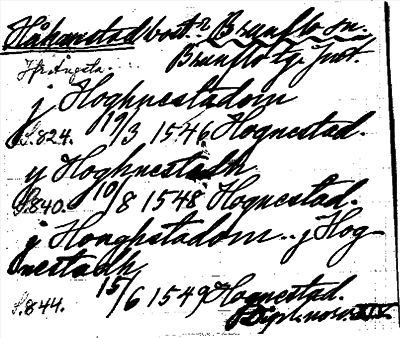 Håknestad bost. i Brunflo sn.
Brunflo tg. Jmt.
j Hoghnestadom
S.824. 19/3 1546 Hognestad.
y Hoghnestadh
S.840. 10/8 1548 Hognestad.
j Honghstadom.. j Hog
nestadh
S.844. 15/6 1549 Hognestad.
Dipl. norv. XIV